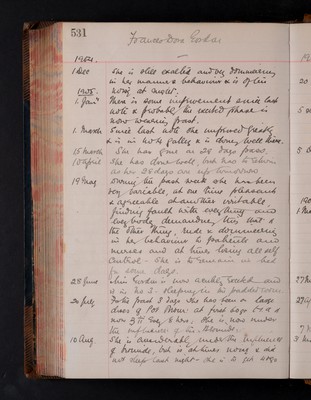 531
Frances Dora
1904.
1 Dec She is still excited and very domineering
in her manner & behaviour & is often
1905. noisy at night.
1 Jan There is some improvement since last
note & probably the excited phase is
now wearing past.
1 March Since last note she improved greatly
& is in no 4 galley & is doing well there.
15 March She has gone on 28 days
10 April She has done well, but has to return
as her 28 days are up tomorrow
19 May During the past week she has been
very variable, at one time pleasant
& agreeable at another irritable,
finding fault with everything and
everybody, demanding this, that &
the other thing, rude & domineering
in her behaviour to patients and
nurses and at times losing all self
control. She is to remain in bed
for some days.
28 June Miss is now acutely excited and
is in no 3 sleeping in the padded room
20 July In the past 3 days she has been on large
doses of Pot Brom at first 60 grs
now she is now under
the influence of the Bromide.
10 Aug. She is quieter under the influence
of bromide, but is at times noisy & did
not sleep last night - she is to get